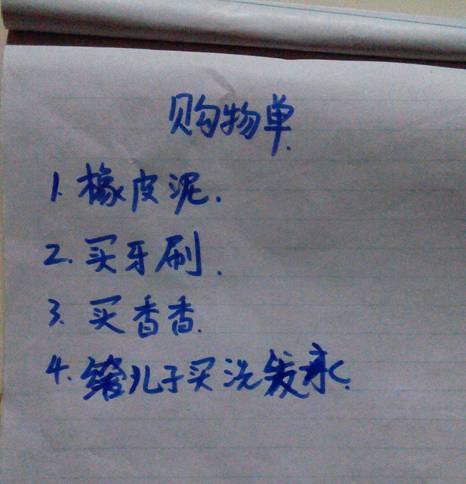 购物单.
1. 橡皮泥.
2. 买牙刷.
3. 买香香.
4. 给儿子买洗发水.